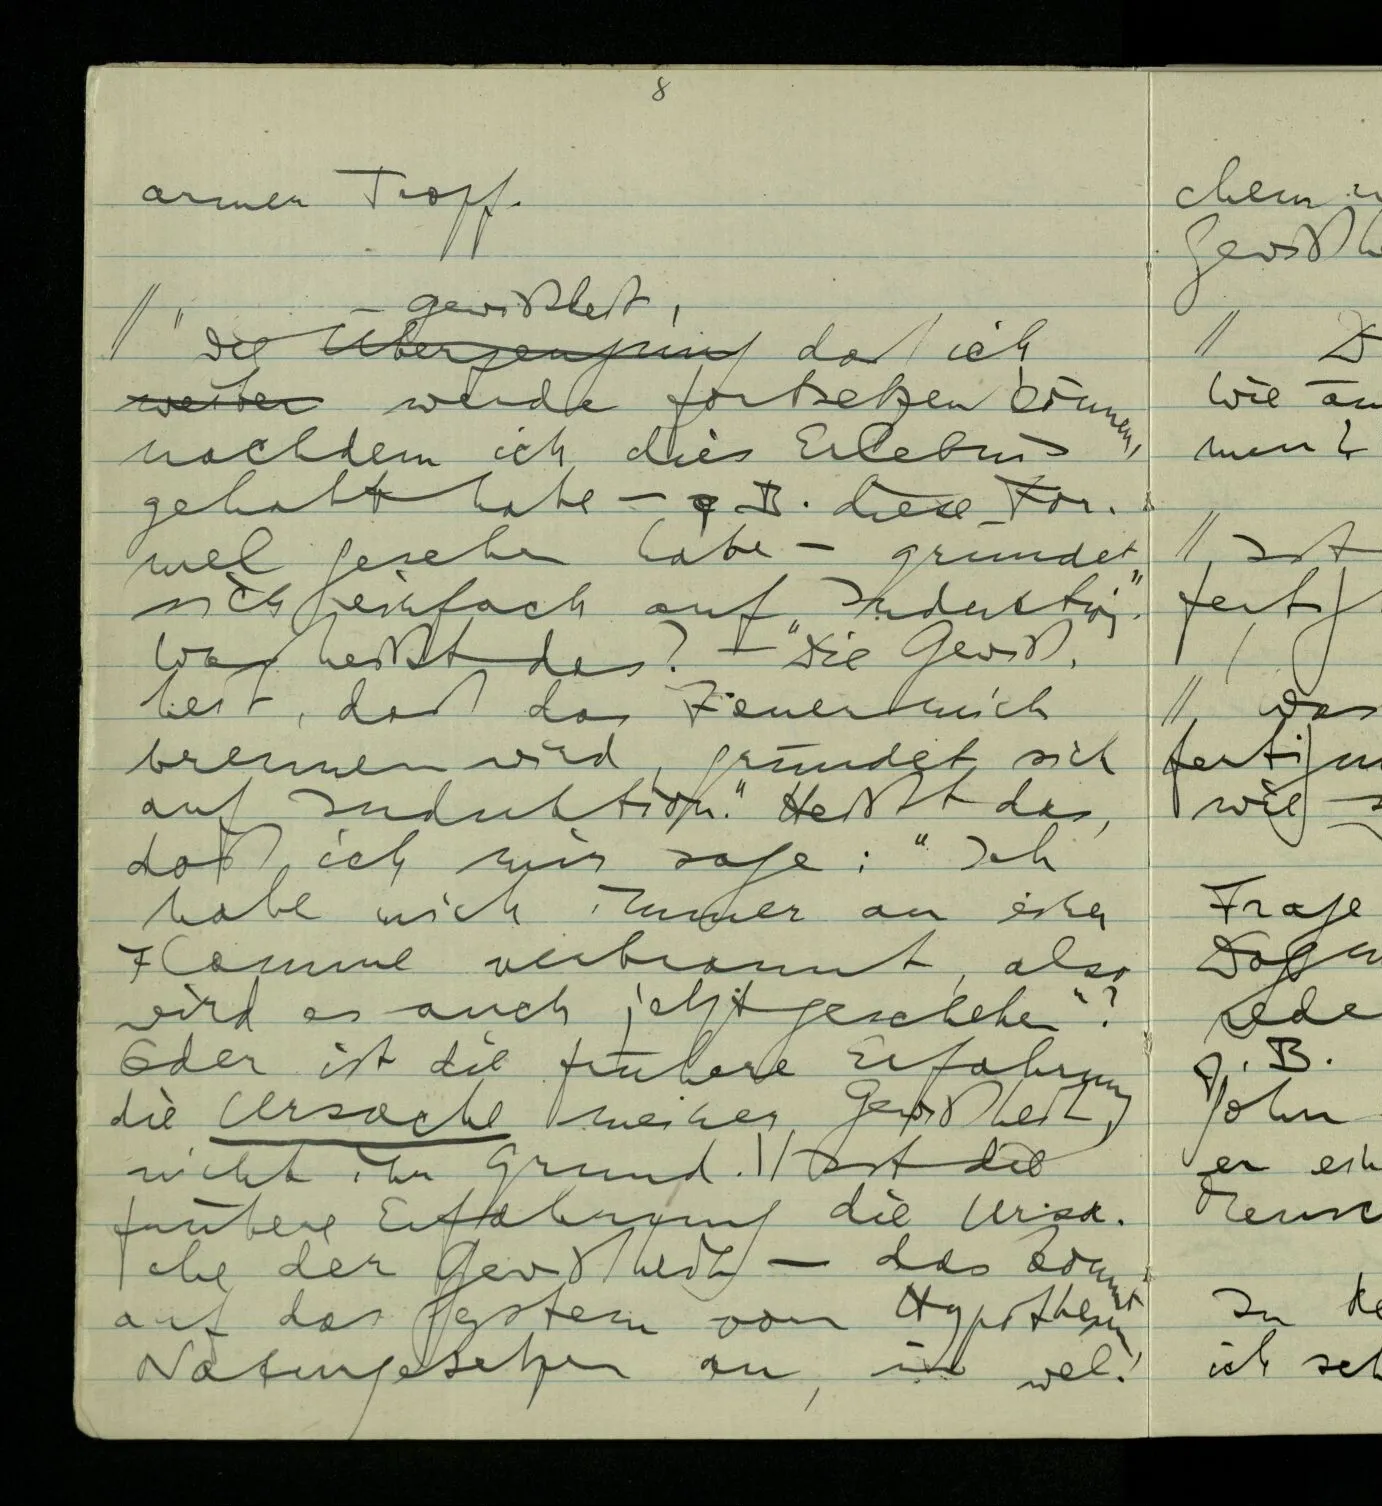 8
armen Tropf.
// " – Gewißheit,
Die Überzeugung daß ich
weiter werde fortsetzen können,
nachdem ich dies Erlebnis
gehabt habe – z.B. diese For-
mel gesehen habe – gründet
sich einfach auf Induktion."
Was heißt das? – "Die Gewiß-
heit, daß das Feuer mich
brennen wird, gründet sich
auf Induktion." Heißt das,
daß ich mir sage: "Ich
habe mich immer an einer
Flamme verbrannt, also
wird es auch jetzt geschehen"?
Oder ist die frühere Erfahrung
die Ursache meiner Gewißheit,
nicht ihr Grund. // Ist die
frühere Erfahrung die Ursa-
che der Gewißheit – das kommt
auf das System von Hypothesen,
Naturgesetzen an, in wel-
chem
Gewißh
//
wie
// Ist
fertig
// Was
fertigu
wie
Frage
Dogm
rede
z.B.
John
er ein
Mensch
In
ich seh